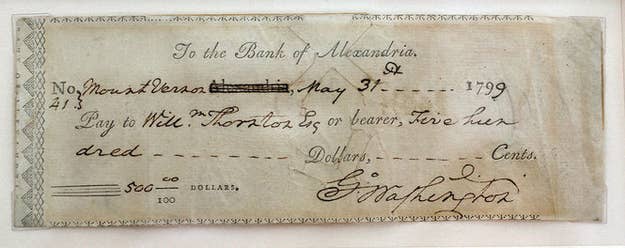 To the Bank of Alexandria.
No. 41. Mount Vernon Alexandria, May 31st 1799
Pay to Willm. Thornton Esq or bearer, Five hun
dred Dollars, Cents.
500 00/100 DOLLARS. Go. Washington